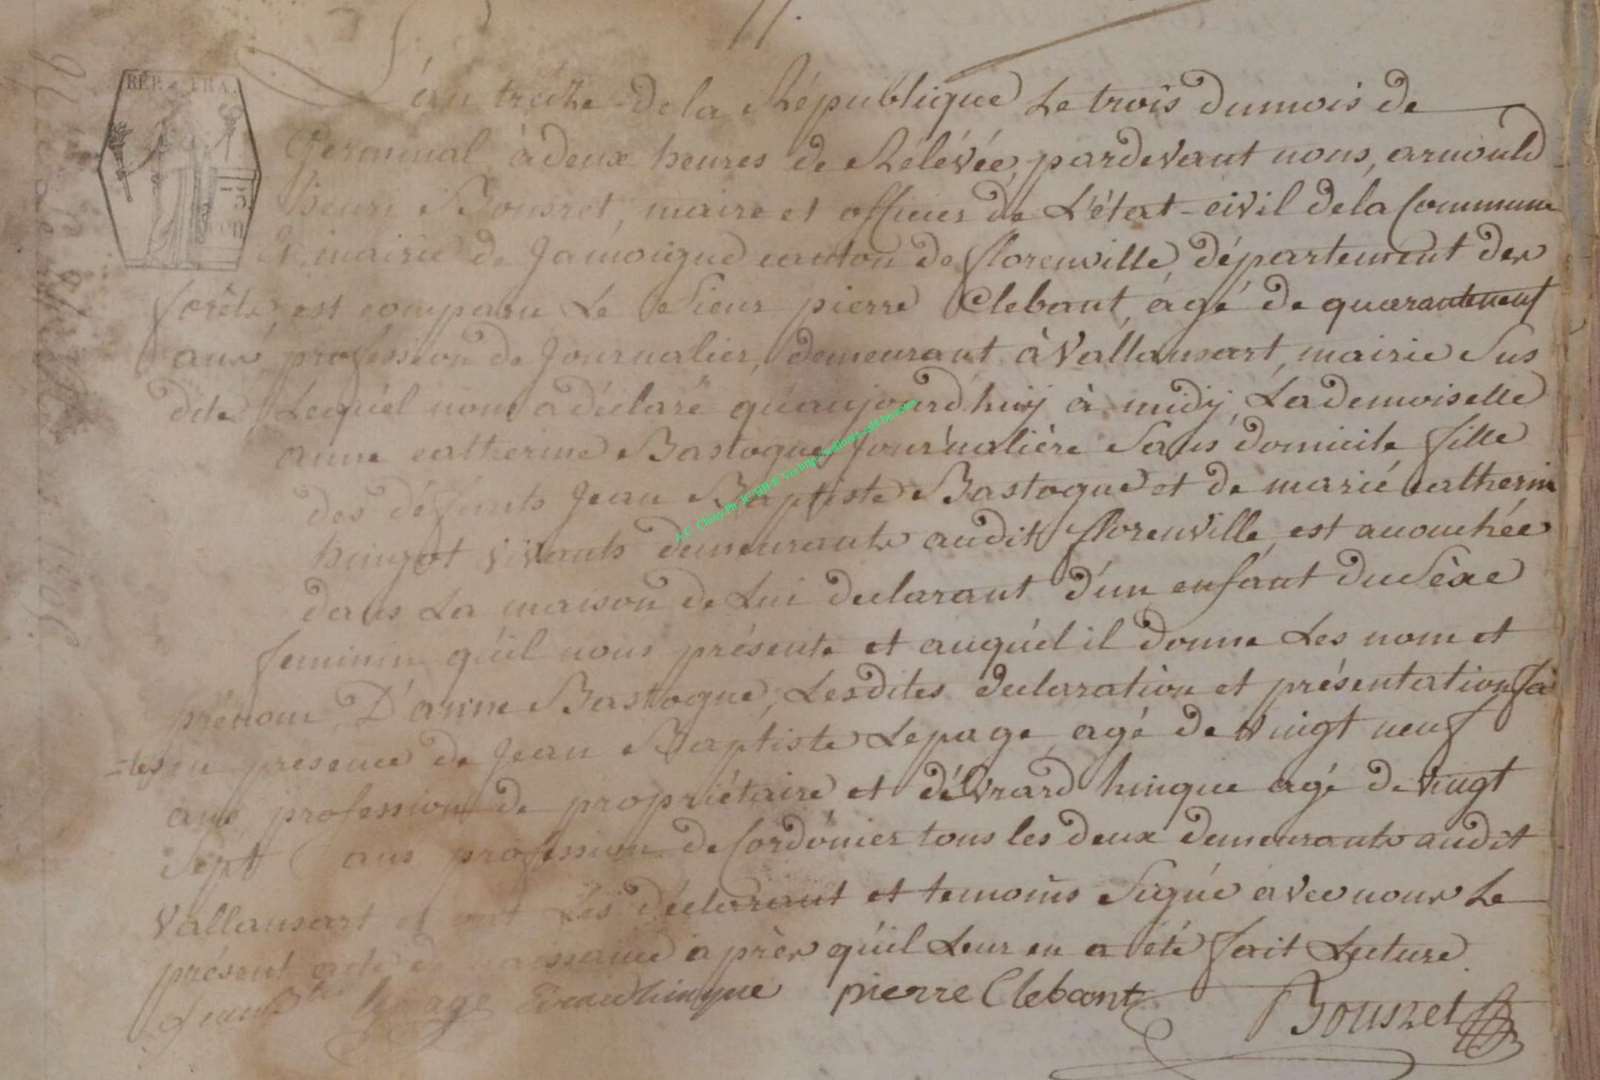 RÉP. FRA.
L'an treize de la République le trois du mois de
Germinal, à deux heures de Rélévée, pardevant nous, arnould
henri Bousret, maire et officier de L'état-civil de la Commune
mairie de Jamoigne canton de florenville, département des
forêts, est comparu Le Sieur pierre Clebant, agé de quaranteneuf
ans, profession de Journalier, demeurant à Vallansart, mairie Sus
dite, Lequel nous a déclaré qu'aujourd'huÿ à midÿ, La demoiselle
anne catherine Bastogne Journalière Sans domicile fille
des défunts Jean Baptiste Bastogne et de marié catherin
vivants demeurants audit florenville, est accouchée
dans La maison de Lui declarant d'un enfant du Sèxe
feminin qu'il nous présente et auquél il donne Les nom et
prénom D'anne Bastogne, Lesdites declaration et présentation fai
=tes en présence de Jean Baptiste Lepage, agé de vingt neuf
ans, profession de propriétaire, et d'éVrard hinque agé de vingt
Sept ans profession de Cordonier tous les deux demeurants audit
Vallansart et ont Les déclarant et temoins Signé avec nous Le
présent acte de naissance après qu'il Leur en a été fait Lecture.
Lepage Evrard hinque pierre Clebant Bousret